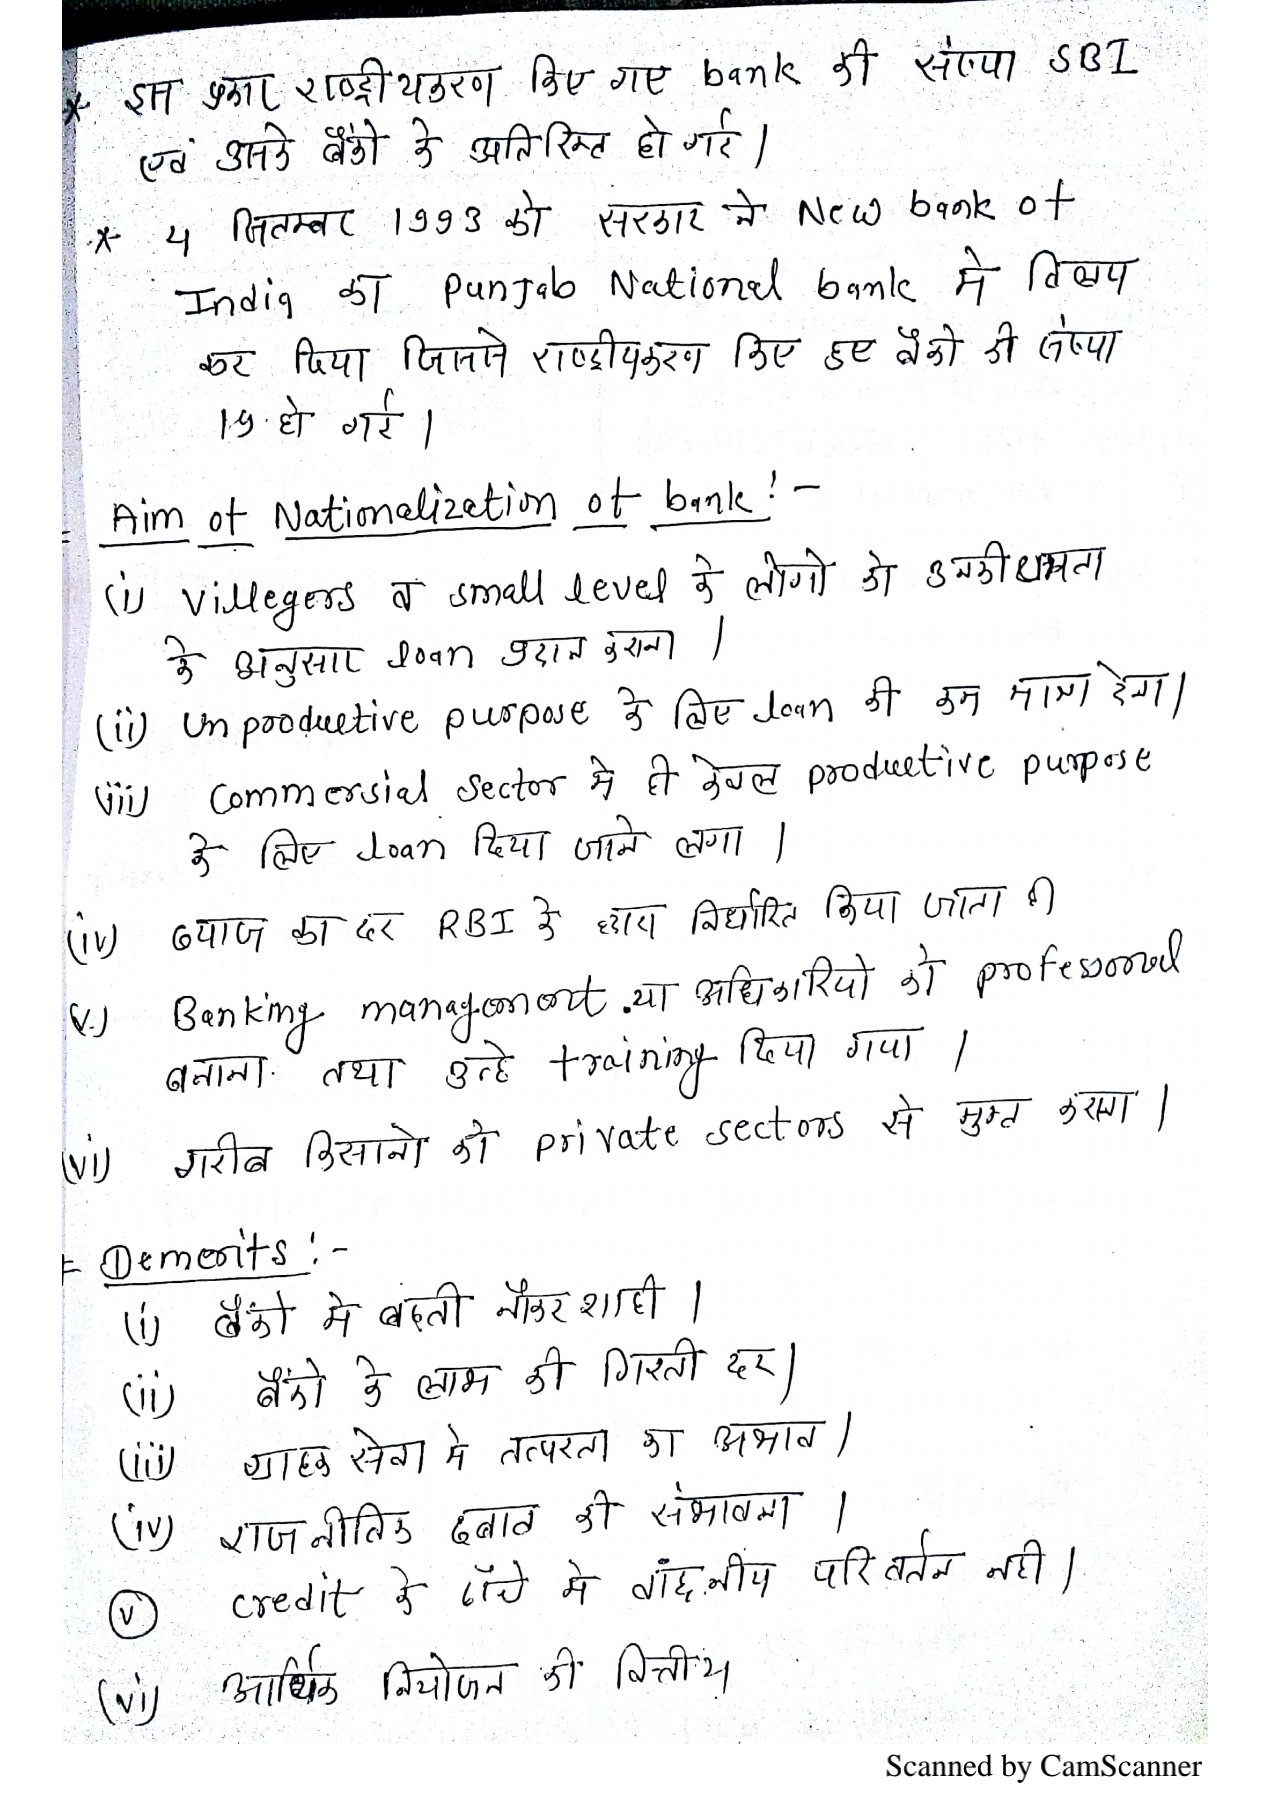 * इस प्रकार राष्ट्रीयकरण किए गए bank की संख्या SBI
एवं उसके बैंको के अतिरिक्त हो गई।
* 4 सितम्बर 1993 को सरकार ने New bank of
India का Punjab National bank मे विलय
कर दिया जिससे राष्ट्रीयकरण किए हुए बैंको की संख्या
19 हो गई।
Aim of Nationalization of bank! -
(i) villegers व small level के लोगो को उनकी क्षमता
के अनुसार loan प्रदान कराना।
(ii) Unproductive purpose के लिए loan की कम मात्रा देना।
(iii) Commersial sector मे ही केवल productive purpose
के लिए loan दिया जाने लगा।
(iv) ब्याज का दर RBI के द्वारा निर्धारित किया जाता ही
(v) Banking management या अधिकारियो को professional
बनाना तथा उन्हे training दिया गया।
(vi) गरीब किसानो को private sectors से मुक्त कराना।
= Demerits :-
(i) बैंको मे बढ़ती नौकर शाही।
(ii) बैंको के लाभ की गिरती दर।
(iii) ग्राहक सेवा मे तत्परता का अभाव।
(iv) राजनीतिक दबाव की संभावना।
(v) credit के ढाँचे मे वांछनीय परिवर्तन नही।
(vi) आर्थिक नियोजन की वित्तीय
Scanned by CamScanner